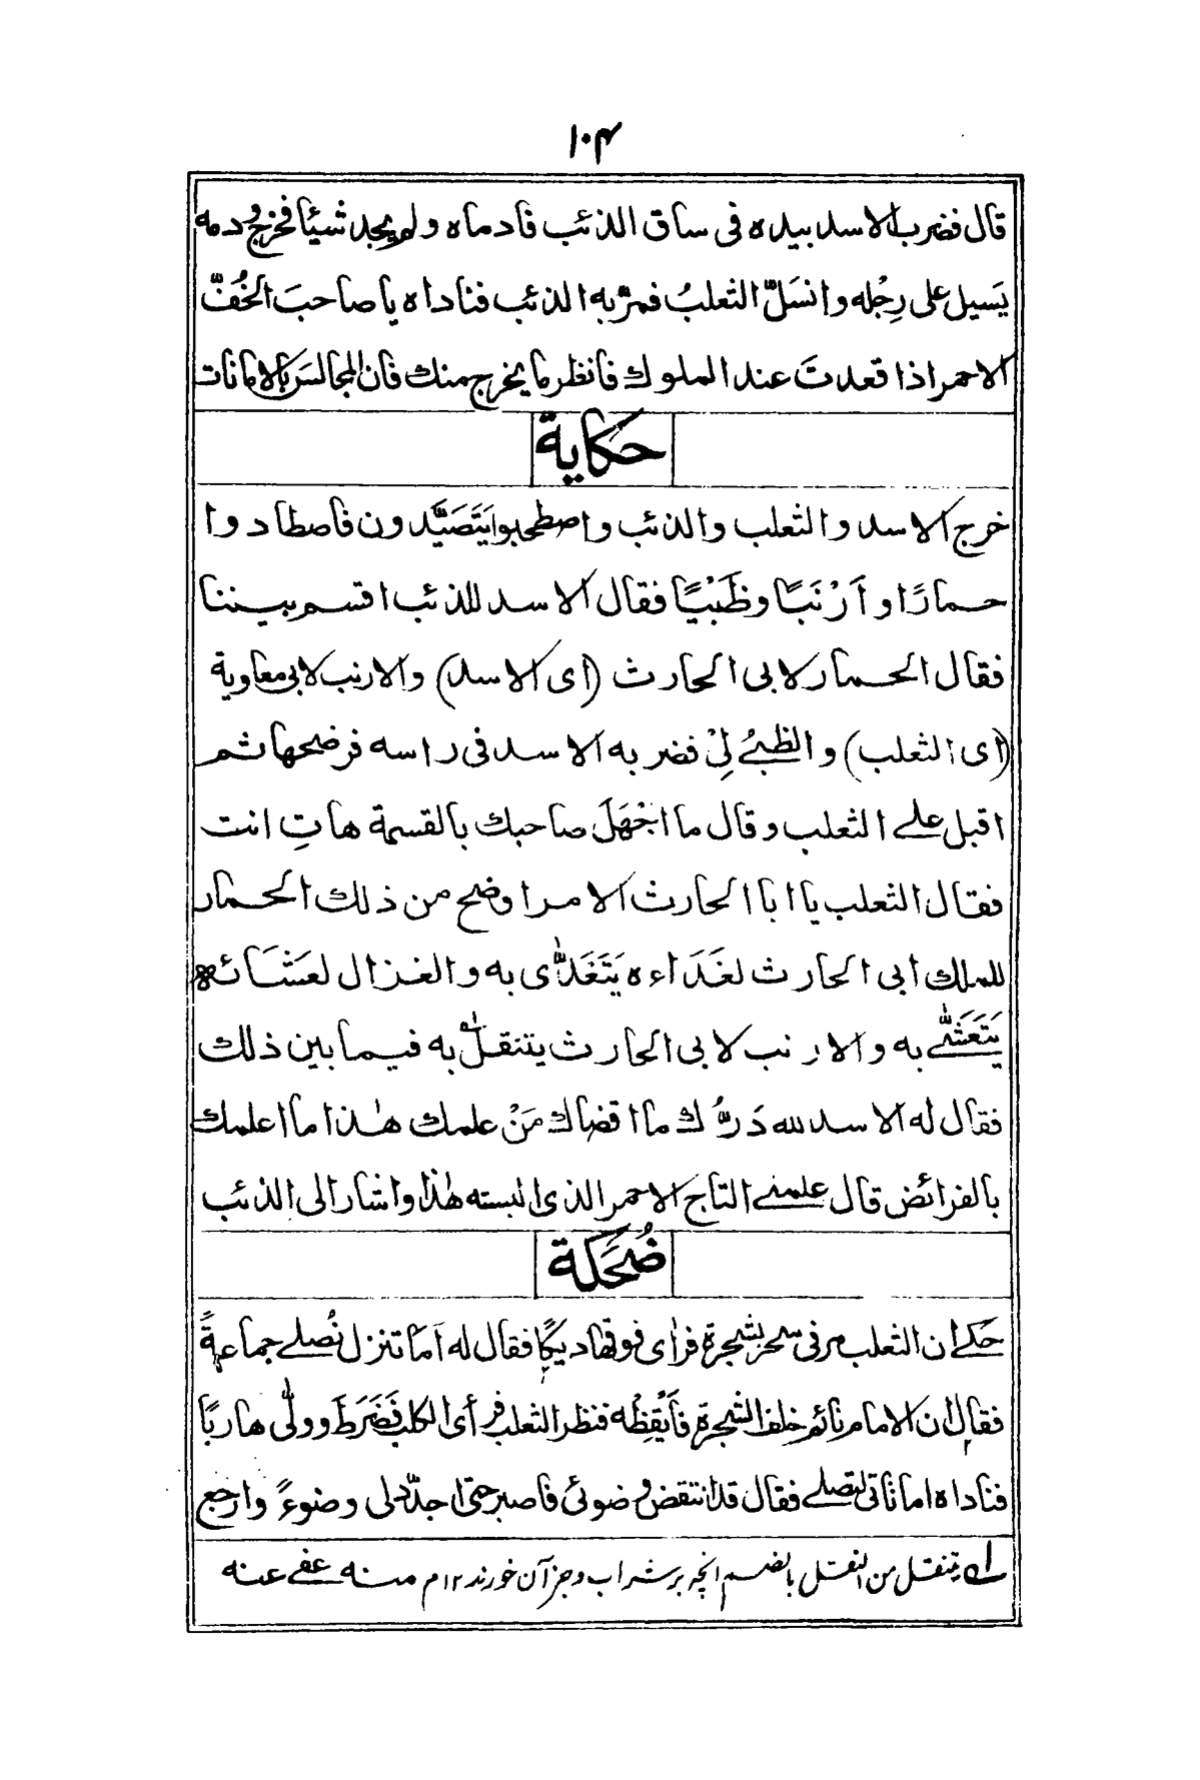 ۱۰۴
قال فضرب الاسد بيده فى ساق الذئب فادماه ولم يجد شيئا فخرج و دمه
يَسيل على رِجْله وانسَلَّ الثعلبُ فمرّ به الذئب فناداه يا صاحبَ الخُفّ
الاحمر اذا قعدتَ عند الملوك فانظر ما يخرج منك فان المجالسَ بالامانات
حكاية
خرج الاسد والثعلب والذئب واصطحبوا يَتَصَيَّدون فاصطادوا
حمارًا و اَرْنَبًا وظَبْيًا فقال الاسد للذئب اقسم بيننا
فقال الحمار لابى الحارث (اى الاسد) والارنب لابى معاوية
(اى الثعلب) والظبىُ لِىْ فضربه الاسد فى راسه فرضحها ثم
اقبل على الثعلب وقال ما اجْهَلَ صاحبك بالقسمة هاتِ انت
فقال الثعلب يا ابا الحارث الامر اوضح من ذلك الحمار
للملك ابى الحارث لغَدَاءه يَتَغَدّٰى به والغزال لعَشَائه
يَتَعَشّٰى به والارنب لابى الحارث يتنقل به فيما بين ذلك
فقال له الاسد لله دَرُّك ما اقضاك مَنْ علمك هٰذا ما اعلمك
بالفرائض قال علمنى التاج الاحمر الذى البسته هٰذا واشار الى الذئب
ضُحَكة
حَكى ان الثعلب مر فى سحر بشجرة فراٰى فوقها ديكًا فقال له اَمَا تنزل نُصلى جماعةً
فقال ان الامام نائم خلف الشجرة فاَيْقِظْه فنظر الثعلب فرأى الكلب فَضَرَطَ وولّٰى هاربًا
فناداه اما تأتى لتصلى فقال قد انتقض وضوئى فاصبر حتى اجدّد لى وضوءً وارجع
لـه يتنقل من النقل بالضم انچه بر شراب و جز آن خورند ۱۲ م منه عفى عنه